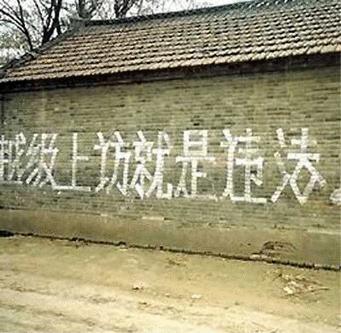 越级上访就是违法